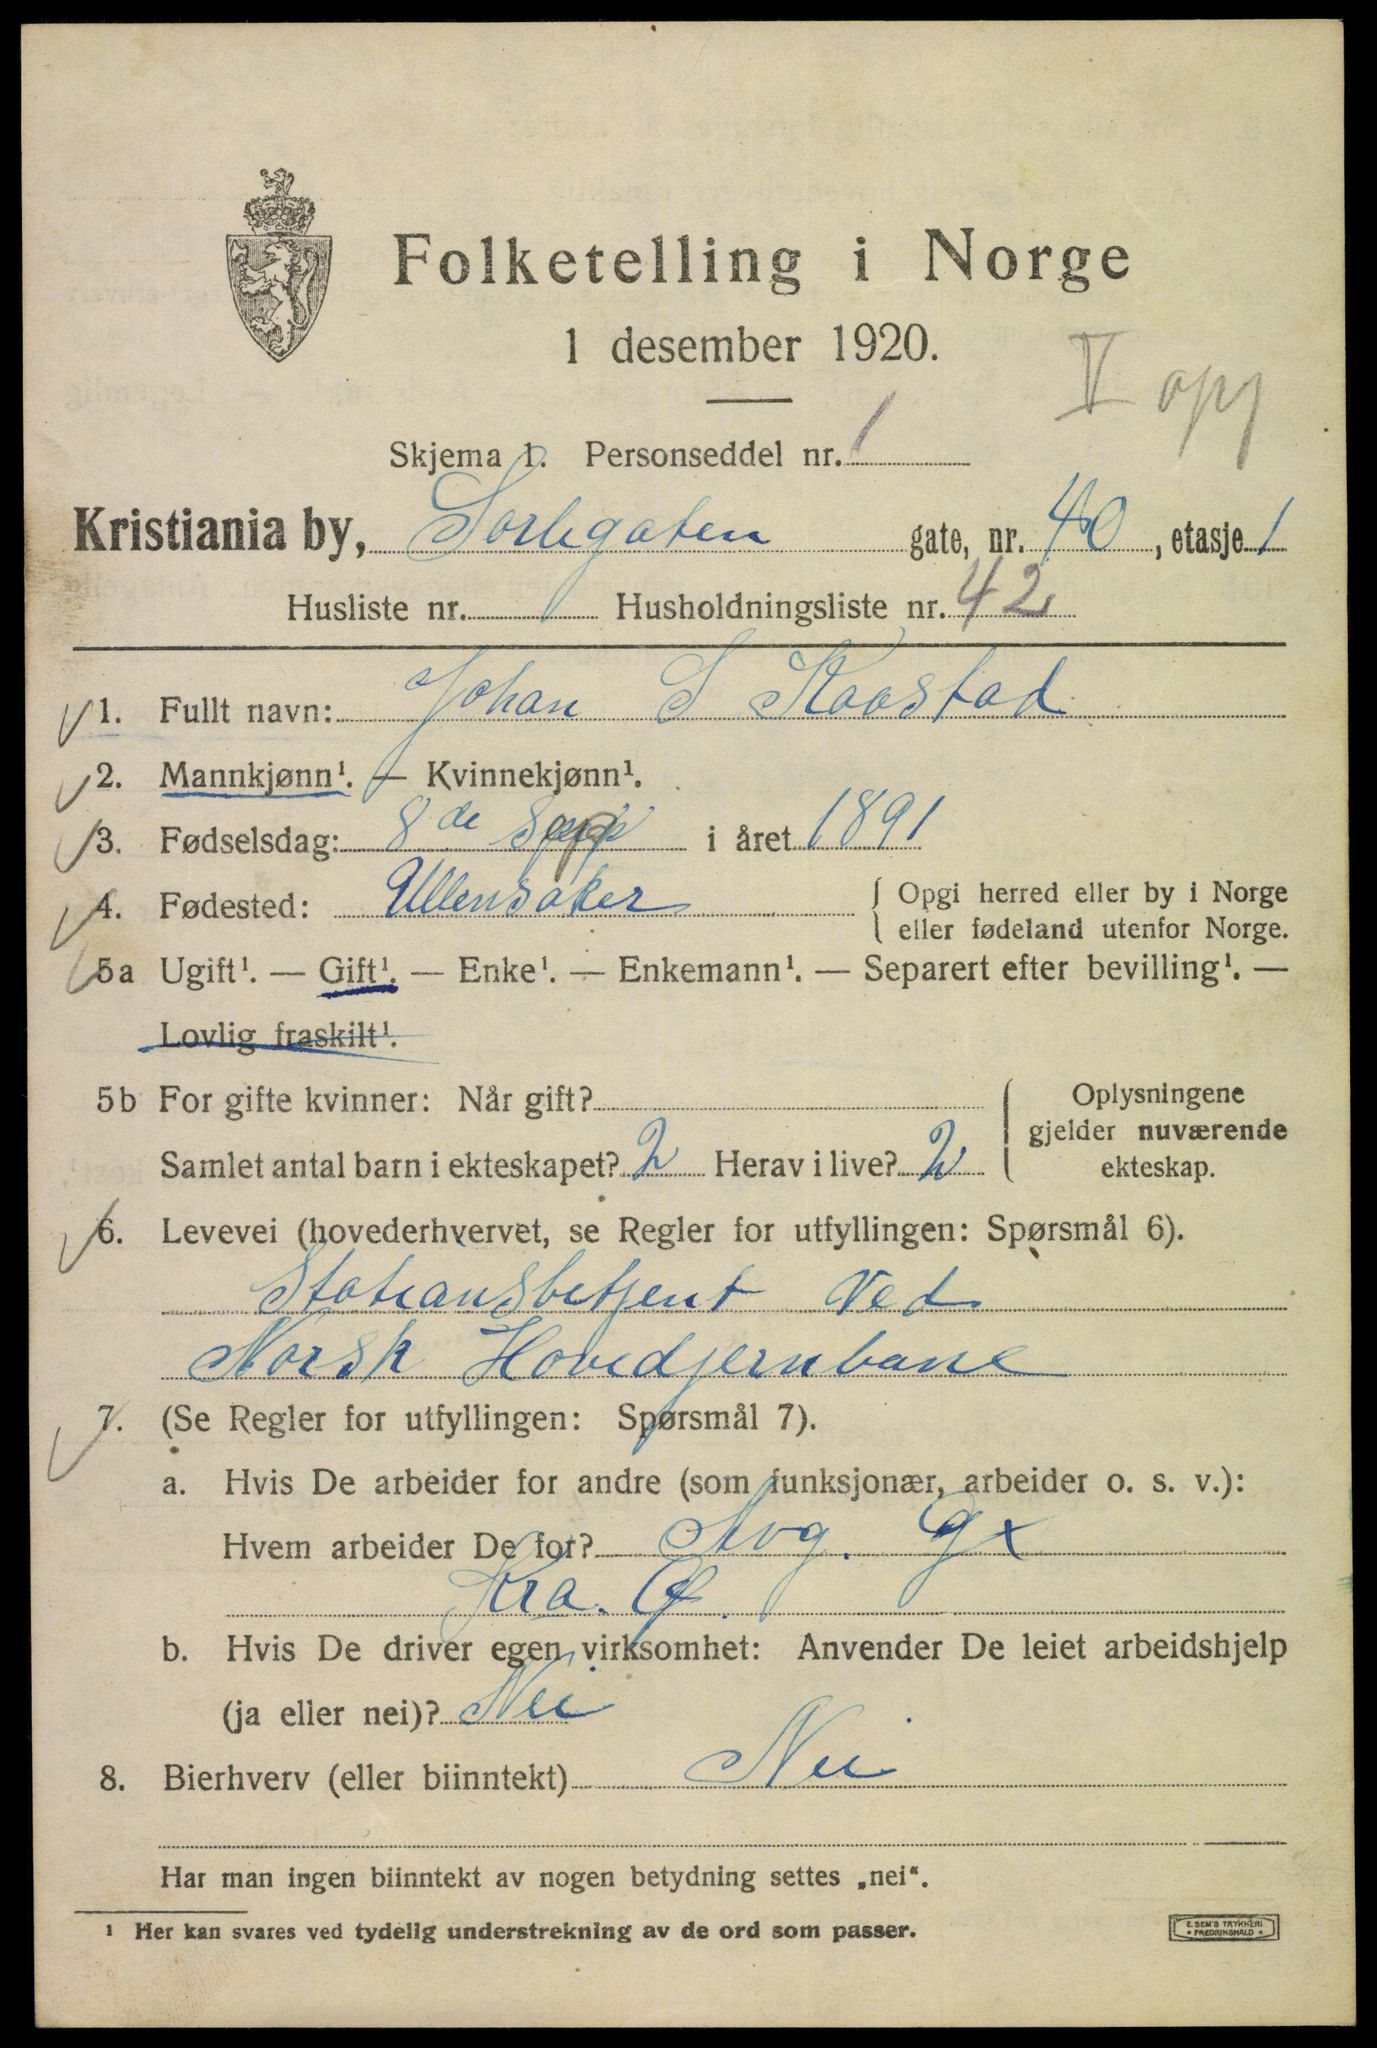 Folketelling i Norge
1 desember 1920.
V opg
Skjema 1. Personseddel nr. 1
Kristiania by, Sorligaten gate, nr. 40, etasje 1
Husliste nr. Husholdningsliste nr. 42
1. Fullt navn: Johan S Kaastad
2. Mannkjønn¹. — Kvinnekjønn¹.
3. Fødselsdag: 8de i året 1891
4. Fødested: Ullensaker { Opgi herred eller by i Norge
eller fødeland utenfor Norge.
5a Ugift¹. — Gift¹. — Enke¹. — Enkemann¹. — Separert efter bevilling¹. —
Lovlig fraskilt¹.
5b For gifte kvinner: Når gift? Oplysningene
gjelder nuværende
Samlet antal barn i ekteskapet? 2 Herav i live? 2 ekteskap.
6. Levevei (hovederhvervet, se Regler for utfyllingen: Spørsmål 6).
Stationsbetjent Ved
Norsk Hovedjernbane
7. (Se Regler for utfyllingen: Spørsmål 7).
a. Hvis De arbeider for andre (som funksjonær, arbeider o. s. v.):
Hvem arbeider De for?
Kra.
b. Hvis De driver egen virksomhet: Anvender De leiet arbeidshjelp
(ja eller nei)? Nei
8. Bierhverv (eller biinntekt) Nei
Har man ingen biinntekt av nogen betydning settes „nei“.
¹ Her kan svares ved tydelig understrekning av de ord som passer.
E. SEM'S TRYKKERI
• FREDRIKSHALD •